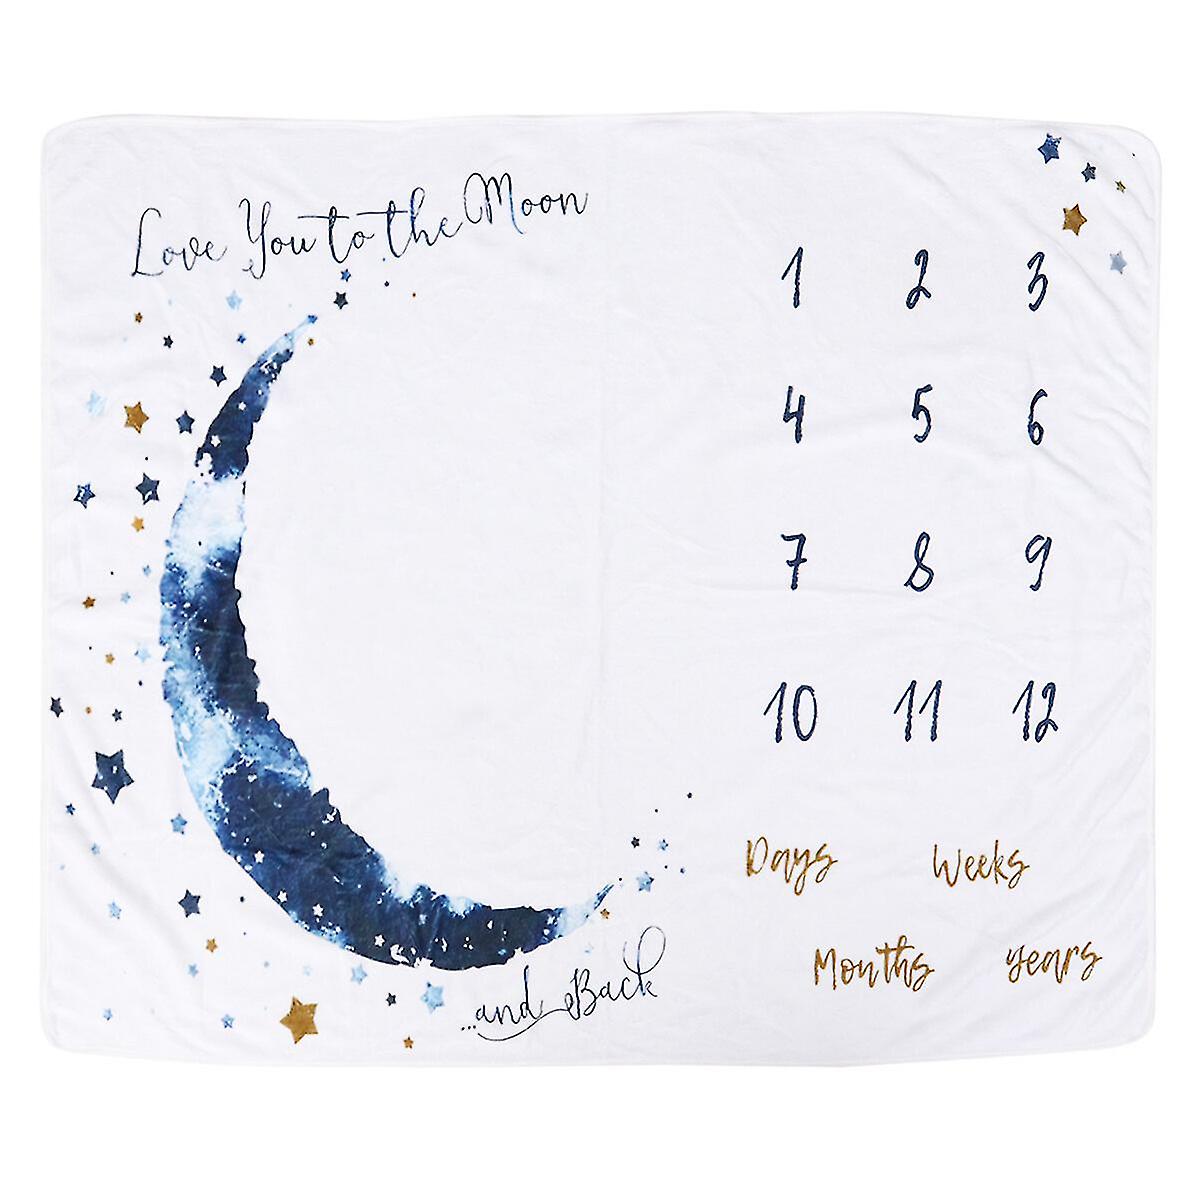 Love You to the Moon
...and Back
1 2 3
4 5 6
7 8 9
10 11 12
Days Weeks
Months years